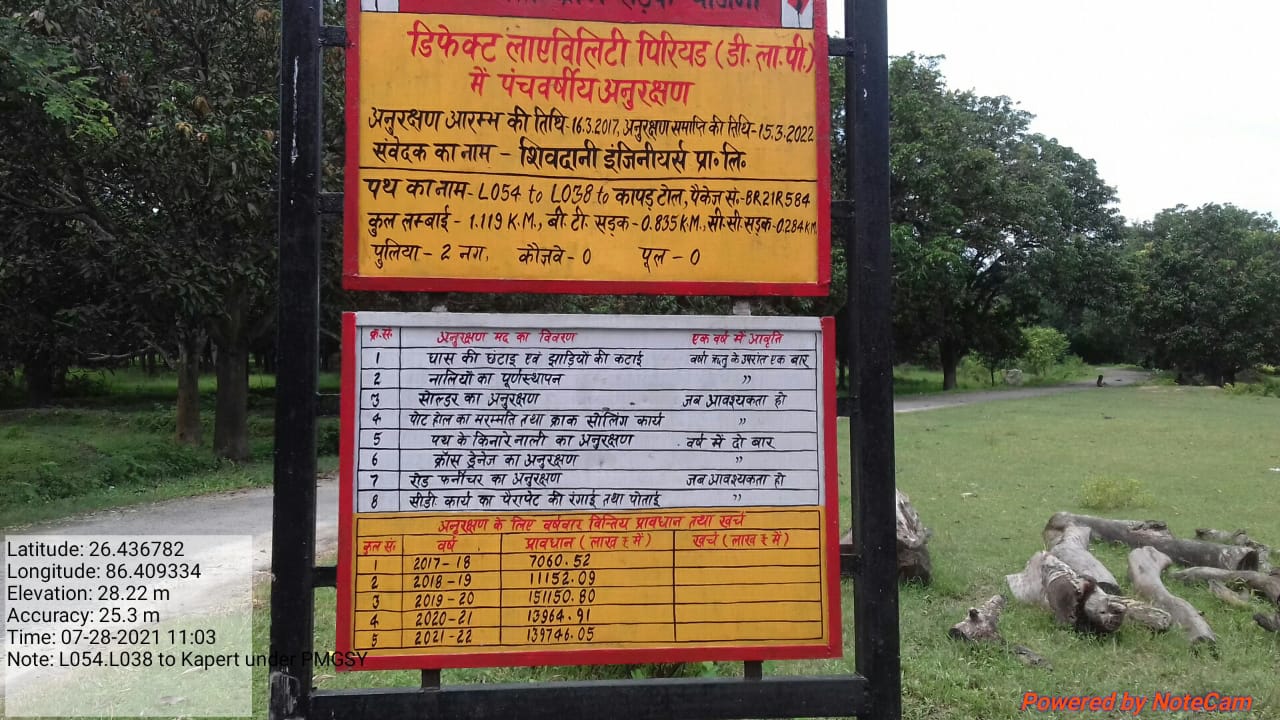 सड़क योजना
डिफेक्ट लाएविलिटी पिरियड (डी. ला.पी.)
में पंचवर्षीय अनुरक्षण
अनुरक्षण आरम्भ की तिथि-16.3.2017, अनुरक्षण समाप्ति की तिथि-15.3.2022
संवेदक का नाम - शिवदानी इंजिनीयर्स प्रा॰ लि॰
पथ का नाम-L054 to L038 to कापड़ टोल, पैकेज सं.-BR21R584
कुल लम्बाई - 1.119 K.M., बी. टी. सड़क-0.835 K.M., सी.सी.सड़क-0.284 K.M.
पुलिया - 2 नग, कौज़वे - 0 पूल - 0
क्र.सं. अनुरक्षण मद का विवरण एक वर्ष में आवृति
1 घास की छंटाइ एवं झाड़ियों की कटाई वर्षा ऋतु के उपरांत एक बार
2 नालियों का पूर्णस्थापन ,,
3 सोल्डर का अनुरक्षण जब आवश्यकता हो
4 पोट होल का मरम्मति तथा क्राक सीलिंग कार्य ,,
5 पथ के किनारे नाली का अनुरक्षण वर्ष में दो बार
6 क्रॉस ड्रेनेज का अनुरक्षण ,,
7 रोड फर्नीचर का अनुरक्षण जब आवश्यकता हो
8 सीडी. कार्य का पैरापेट की रंगाई तथा पोताई ,,
अनुरक्षण के लिए वर्षवार वित्तिय प्रावधान तथा खर्च
कुल सं. वर्ष प्रावधान (लाख ₹ में) खर्च (लाख ₹ में)
1 2017-18 7060.52
2 2018-19 11152.09
3 2019-20 151150.80
4 2020-21 13964.91
5 2021-22 139746.05
Latitude: 26.436782
Longitude: 86.409334
Elevation: 28.22 m
Accuracy: 25.3 m
Time: 07-28-2021 11:03
Note: L054.L038 to Kapert under PMGSY
Powered by NoteCam